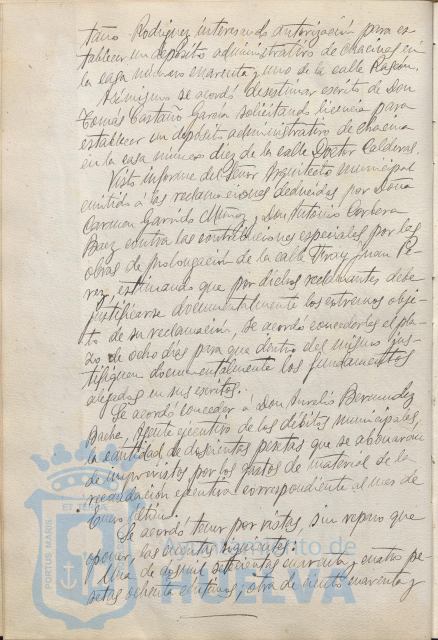 taño Rodríguez interesando autorización para es-
tablecer un depósito administrativo de chacinas en
la casa número cuarenta y uno de la calle Rascón.
Asimismo se acordó desestimar escrito de Don
Tomás Castaño García solicitando licencia para
establecer un depósito administrativo de chacina
en la casa número diez de la calle Doctor Calderas.
Visto informe del Señor Arquitecto municipal
emitido a las reclamaciones deducidas por Doña
Carmen Garrido Muñoz y Don Antonio Corbera
Baez contra las contribuciones especiales por las
obras de prolongación de la calle Fray Juan Pé-
rez, estimando que por dichos reclamantes debe
justificarse documentalmente los extremos obje-
to de su reclamación, se acordó concederles el pla-
zo de ocho días para que dentro del mismo jus-
tifiquen documentalmente los fundamentos
alegados en sus escritos.
Se acordó conceder a Don Aurelio Bermudez
Bache, Agente ejecutivo de los débitos municipales,
la cantidad de doscientas pesetas que se abonarán
de imprevistos por los gastos de material de la
recaudación ejecutiva correspondiente al mes de
Enero último.
Se acordó tener por vistas, sin reparo que
oponer, las cuentas siguientes:
Una de dos mil setecientas cuarenta y cuatro pe-
setas ochenta céntimos; otra de ciento cuarenta y
PORTUS MARIS
ET TERRÆ
Ayuntamiento de
HUELVA